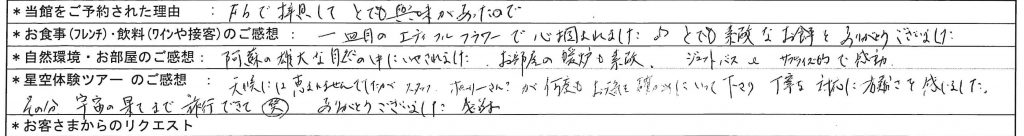 *当館をご予約された理由　：　Fbで拝見して とても興味があったので
*お食事(フレンチ)・飲料(ワインや接客)のご感想：　一皿目のエディブルフラワーで心掴まれました♪ とても素敵なお食事をありがとうございました
*自然環境・お部屋のご感想：　阿蘇の雄大な自然の中にいやされました。お部屋の暖炉も素敵、ジェットバスも サプライズ的で感動
*星空体験ツアー のご感想：　天候には恵まれませんでしたがスタッフ が何度もお天気を確かめにいって下さり 丁寧な対応に 感じました。
その分 宇宙の果てまで 旅行できて(笑) ありがとうございました 感謝
*お客さまからのリクエスト